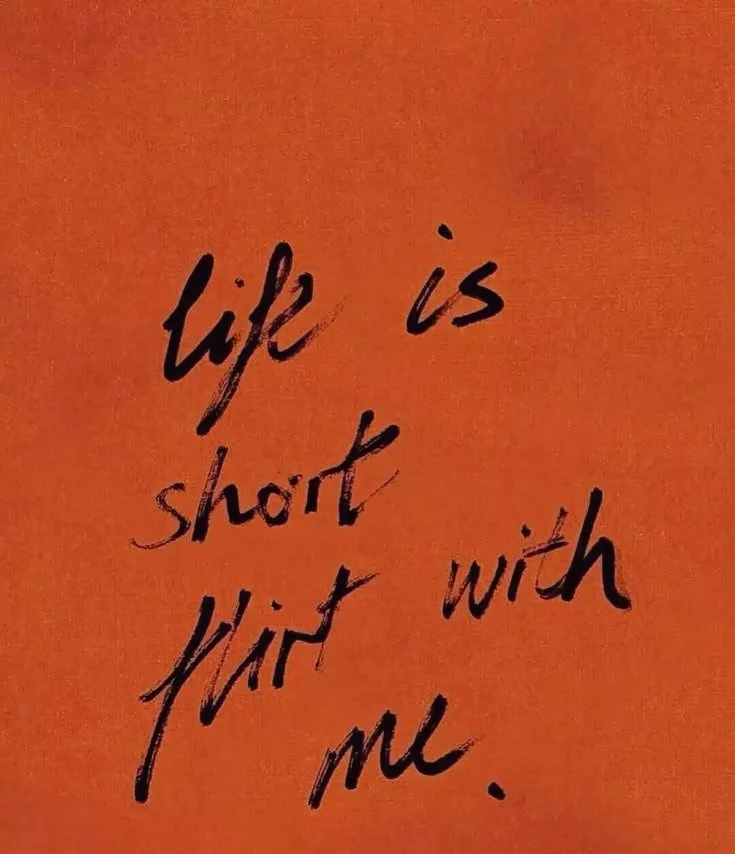 life is
short
flirt with
me.